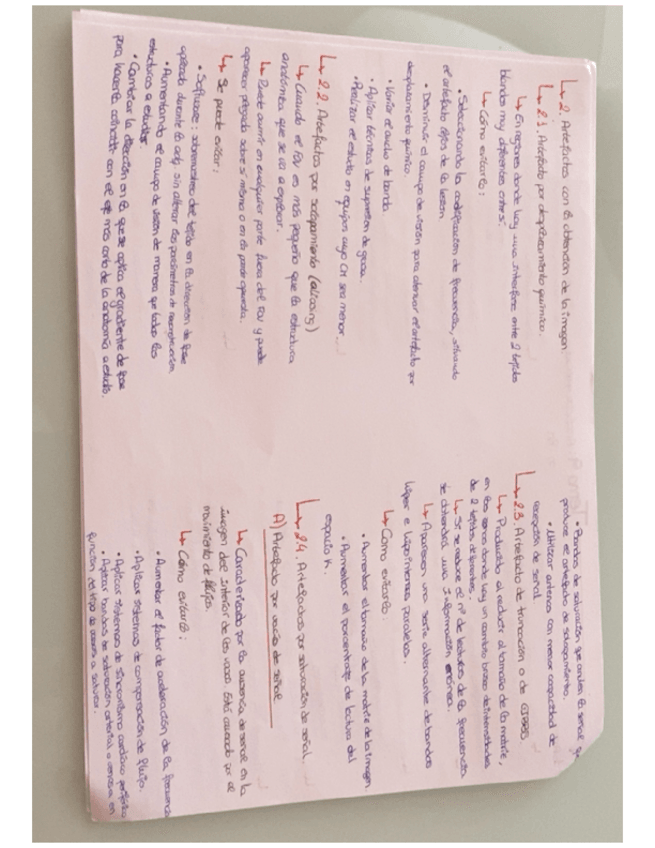 ↳ 2. Artefactos con la obtención de la imagen.
↳ 2.1. Artefacto por desplazamiento químico.
↳ En regiones donde hay una interfase entre 2 tejidos
blandos muy diferentes entre sí.
↳ Cómo evitarlo:
• Seleccionando la codificación de frecuencia, situando
el artefacto lejos de la lesión
• Disminuir el campo de visión para atenuar el artefacto por
desplazamiento químico.
• Variar el ancho de banda.
• Aplicar técnicas de supresión de grasa.
• Realizar el estudio en equipos cuyo CM sea menor.
↳ 2.2. Artefactos por solapamiento (aliasing)
↳ Cuando el FOV es más pequeño que la estructura
anatómica que se va a explorar.
↳ Puede ocurrir en cualquier parte fuera del FOV y puede
aparecer plegada sobre sí misma o en la pared opuesta.
↳ Se puede evitar:
• Software: sobremuestreo del tejido en la dirección de fase
aplicada durante la adq. sin alterar los parámetros de reconstrucción
• Aumentando el campo de visión de manera que todas las
estructuras a estudiar.
• Cambiar la dirección en la que se aplica el gradiente de fase
para hacerla coincidir con el eje más corto de la anatomía a estudio.
• Bandas de saturación que anulen la señal
produce el artefacto de solapamiento.
• Utilizar antenas con menor capacidad de
recepción de señal.
↳ 2.3. Artefacto de truncación o de GIBBS.
↳ Producido al reducir el tamaño de la matriz,
en las zonas donde hay un cambio brusco de intensidades
de 2 tejidos diferentes.
↳ Si se reduce el nº de lecturas de la frecuencia
se obtendrá una información errónea.
↳ Aparecen una serie alternante de bandas
hiper e hipointensas paralelas.
↳ Como evitarlo:
• Aumentar el tamaño de la matriz de la imagen.
• Aumentar el porcentaje de lectura del
espacio K.
↳ 2.4. Artefactos por saturación de señal.
A) Artefacto por vacío de señal
↳ Caracterizado por la ausencia de señal en la
imagen del interior de los vasos. Está causado por el
movimiento de flujos.
↳ Cómo evitarlo:
• Aumentar el factor de aceleración de la frecuencia
• Aplicar sistemas de compensación de flujo.
• Aplicar sistemas de sincronismo cardiaco periférico
• Aplicar bandas de saturación arterial o venosa en
función del tipo de vasos a saturar.